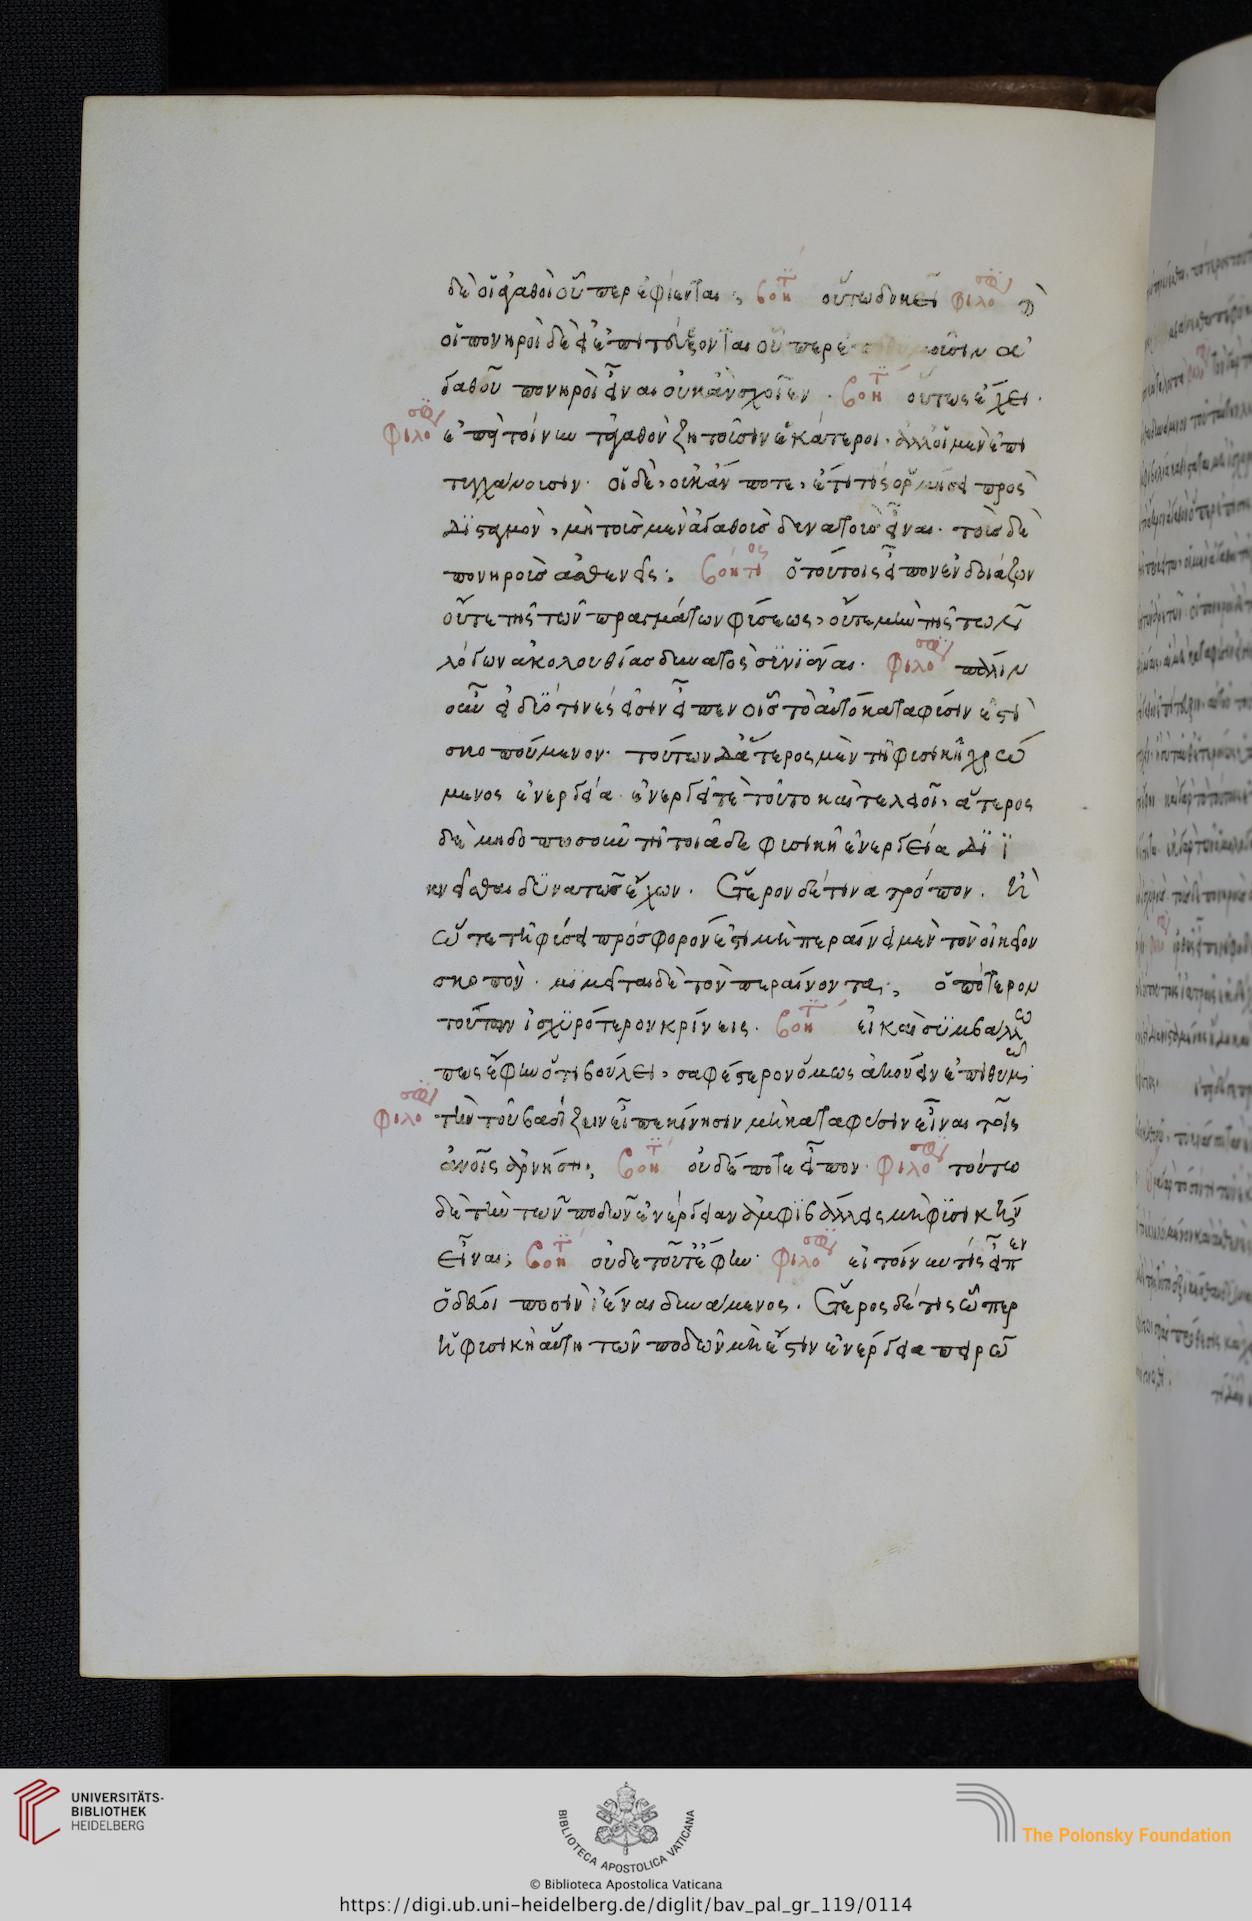 δὲ οἱ ἀγαθοὶ οὗπερ ἐφίενται; βοητ οὕτω δοκεῖ φιλοσοφ
οἱ πονηροὶ δὲ εἰ ἐπιτεύξονται οὗπερ
γαθοῦ πονηροὶ εἶναι οὐκ ἀνσχοῖεν. βοητ οὕτως ἔχει.
φιλοσοφ ἐπεὶ τοίνυν τἀγαθὸν ζητοῦσιν ἑκάτεροι. ἀλλ' οἱ μὲν ἐπι
τυγχάνουσιν. οἱ δὲ, οὐκ ἄν ποτε, ἔτι τίς ὁρμήσει πρὸς
δϊσταγμὸν, μὴ τοὺς μὲν ἀγαθοὺς δυνατοὺς εἶναι. τοὺς δὲ
πονηροὺς ἀσθενεῖς; βοητιος ὁ τούτοις εἶπον ἐνδοιάζων
οὔτε τῆς τῶν πραγμάτων φύσεως, οὔτε μὴν τῆς τῶν
λόγων ἀκολουθίας δυνατὸς σϋνϊέναι. φιλοσοφ πάλιν
οὖν εἰ δϋό τινές εἰσιν εἶπεν οἷς τὸ αὐτὸ κατὰ φύσιν ἐστὶ
σκοπούμενον. τούτων δ' ἅτερος μὲν τῇ φυσικῇ χρώ
μενος ἐνεργείᾳ ἐνεργεῖ τὲ τοῦτο καὶ τελειοῖ, ἅτερος
δὲ μηδοπωσοῦν τῇ τοιᾷδε φυσικῇ ἐνεργείᾳ δϊϊ
κνεῖσθαι δϋνατῶς ἔχων. ἕτερον δέ τινα τρόπον. ἢ
ὥς τε τῇ φύσει πρόσφορόν ἐστι μὴ περαίνει μὲν τὸν οἰκεῖον
σκοπόν. μϊμεῖται δὲ τὸν περαίνοντα; ὁπότερον
τούτων ἰσχϋρότερον κρίνεις. βοητ εἰ καὶ σϋμβάλλω
πως ἔφην ὅτι βούλει, σαφέστερον ὅμως ἀκούειν ἐπιθυμῶ
φιλοσοφ τὴν τοῦ βαδίζειν εἶπε κίνησιν μὴ κατὰ φύσιν εἶναι τοῖς
ἀνοις ἀρνήσῃ; βοητ οὐδέποτε εἶπον φιλοσοφ τούτω
δὲ τὴν τῶν ποδῶν ἐνέργειαν ἀμφϊβάλλεις μὴ φϋσικὴν
εἶναι; βοητ οὐδὲ τοῦτ' ἔφην. φιλοσοφ εἰ τοίνυν τίς εἶπεν
ὁδεύοι ποσὶν ἰέναι δυνάμενος. ἕτερος δέ τις ᾧπερ
ἡ φυσικὴ αὕτη τῶν ποδῶν μὴ ἔστιν ἐνέργεια πειρῷ
UNIVERSITÄTS-
BIBLIOTHEK
HEIDELBERG
BIBLIOTECA APOSTOLICA VATICANA
The Polonsky Foundation
© Biblioteca Apostolica Vaticana
https://digi.ub.uni-heidelberg.de/diglit/bav_pal_gr_119/0114